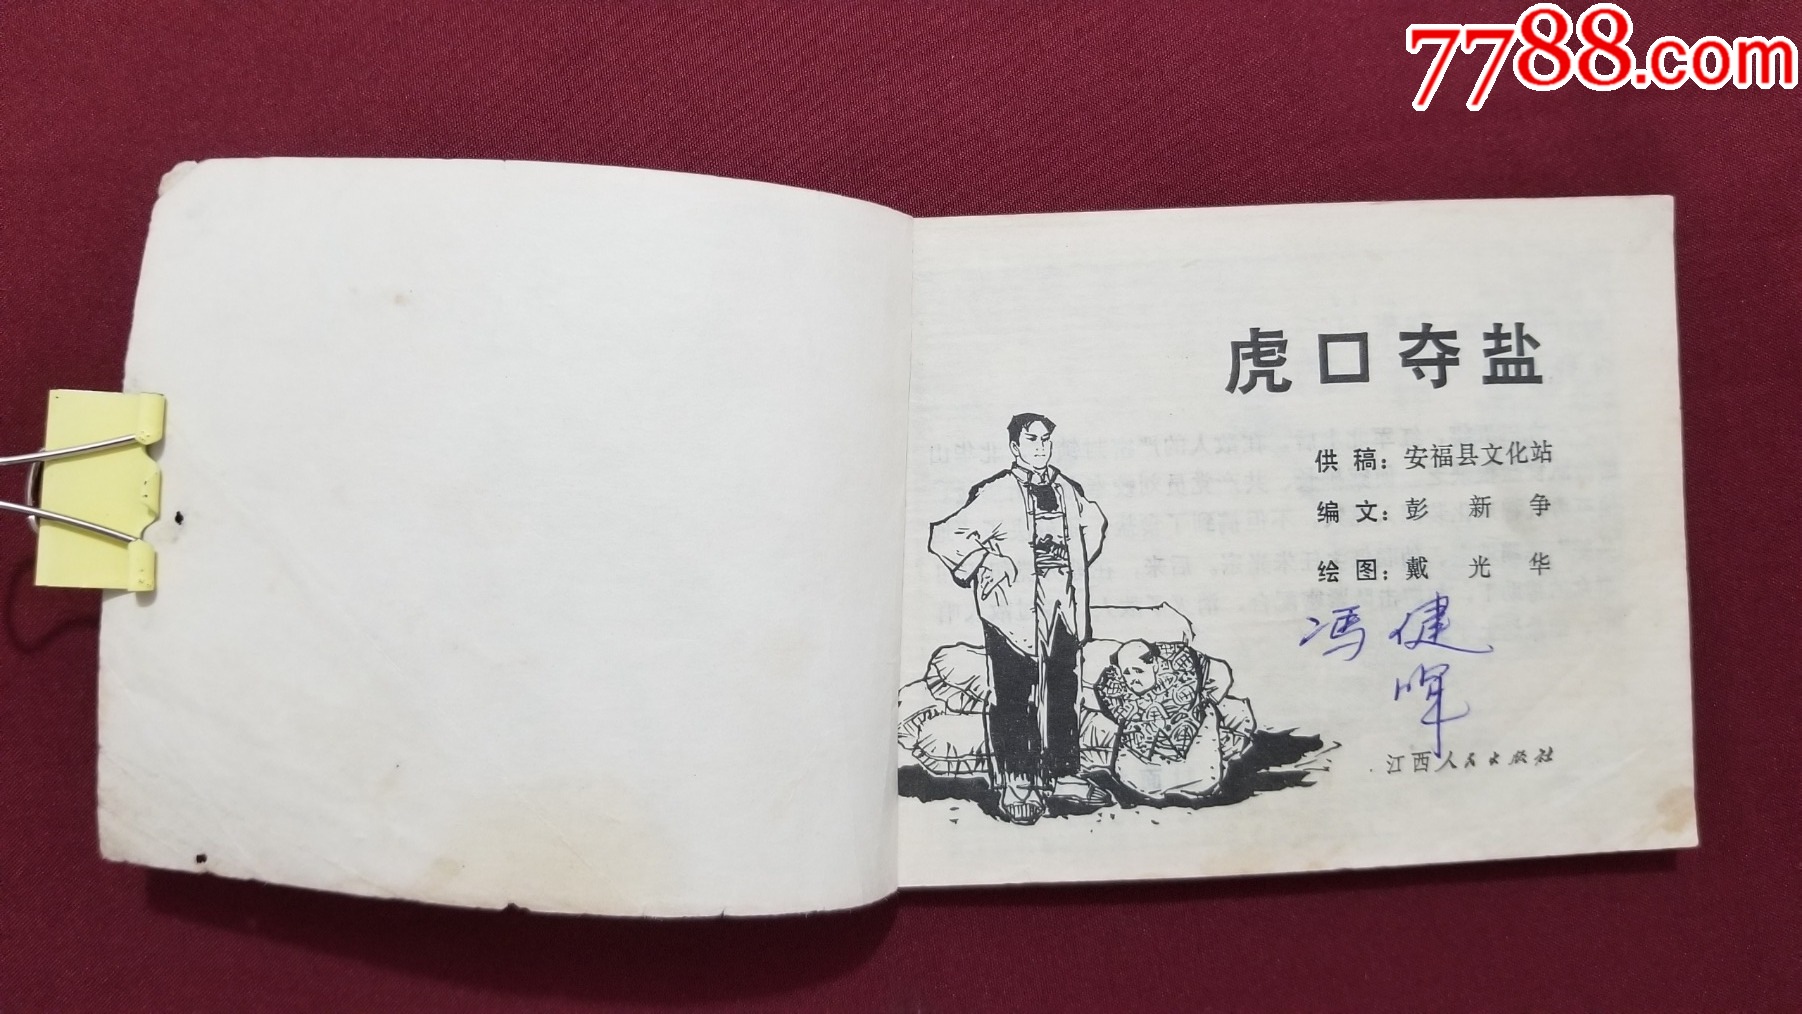 7788.com
虎口夺盐
供稿：安福县文化站
编文：彭新争
绘图：戴光华
冯健
晖
江西人民出版社